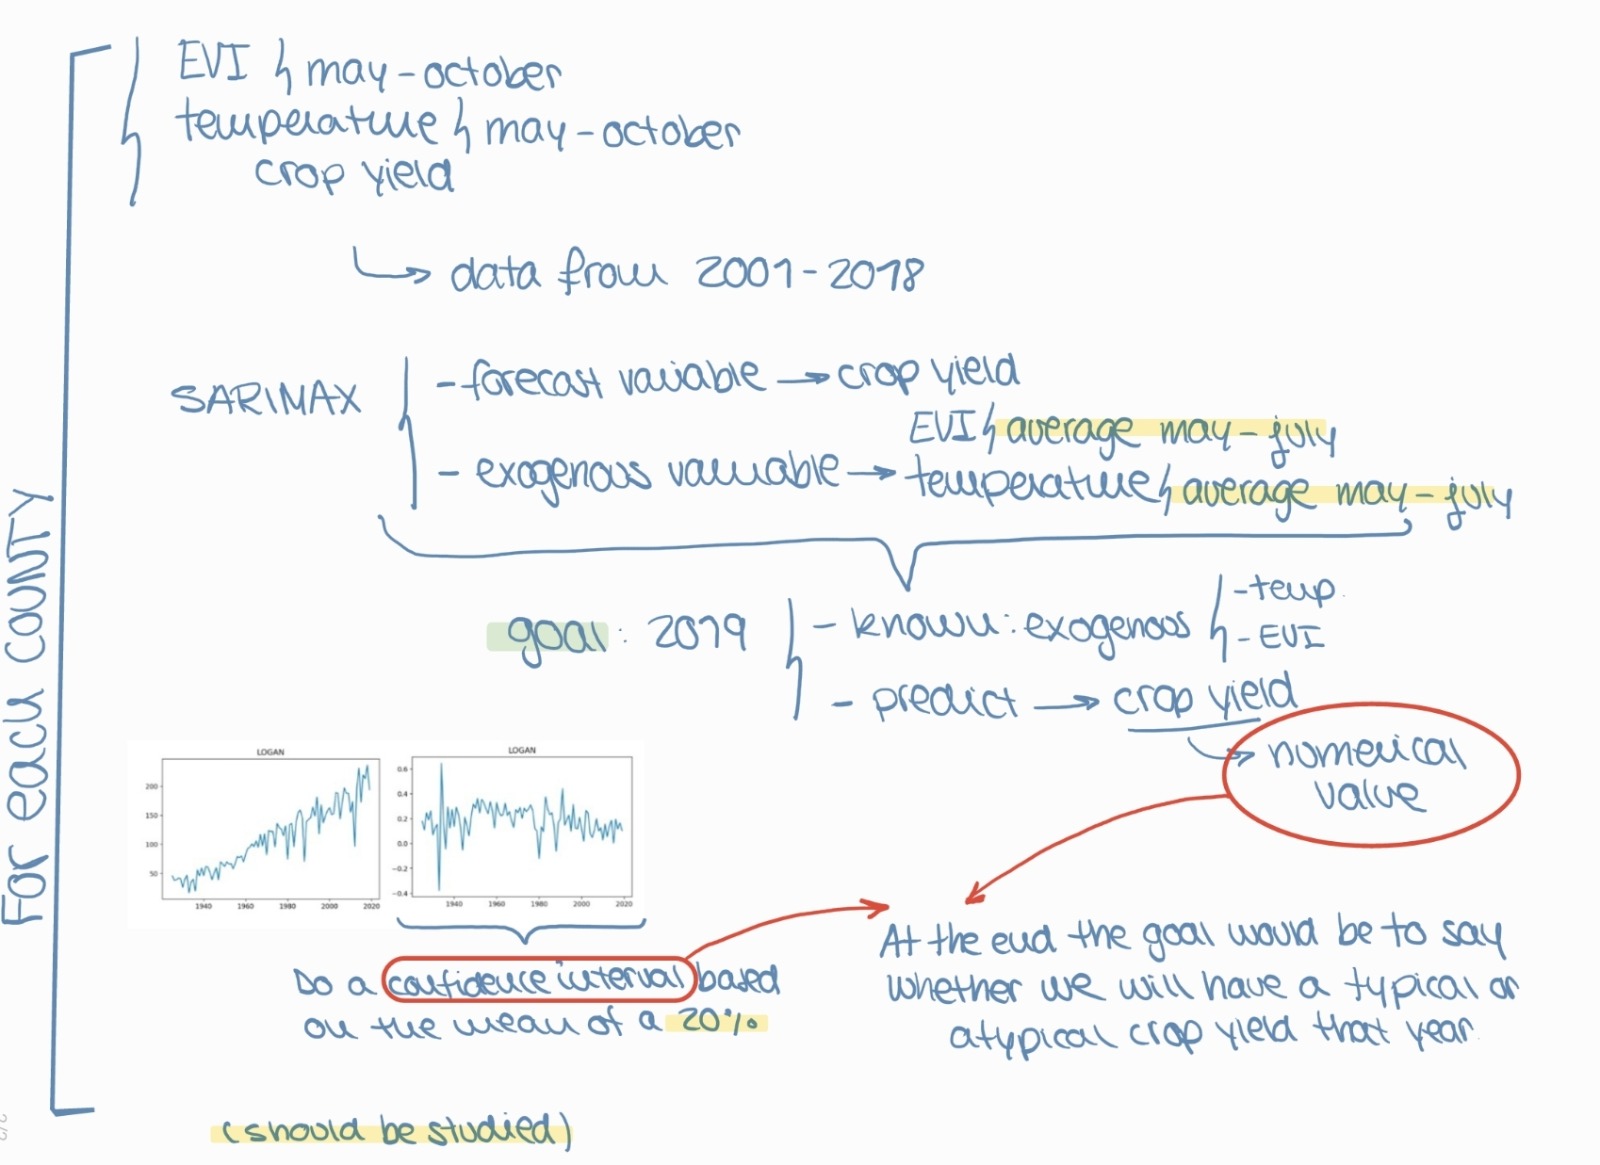 For each COUNTY
EVI may-october
temperature may-october
crop yield
data from 2001-2018
SARIMAX
- forecast variable → crop yield
EVI average may-july
- exogenous variable → temperature average may-july
goal: 2019
- known: exogenous
- temp.
- EVI
- predict → crop yield
numerical value
LOGAN
200
150
100
50
1940 1960 1980 2000 2020
LOGAN
0.6
0.4
0.2
0.0
−0.2
−0.4
1940 1960 1980 2000 2020
Do a confidence interval based
on the mean of a 20%
At the end the goal would be to say
whether we will have a typical or
atypical crop yield that year.
(should be studied)